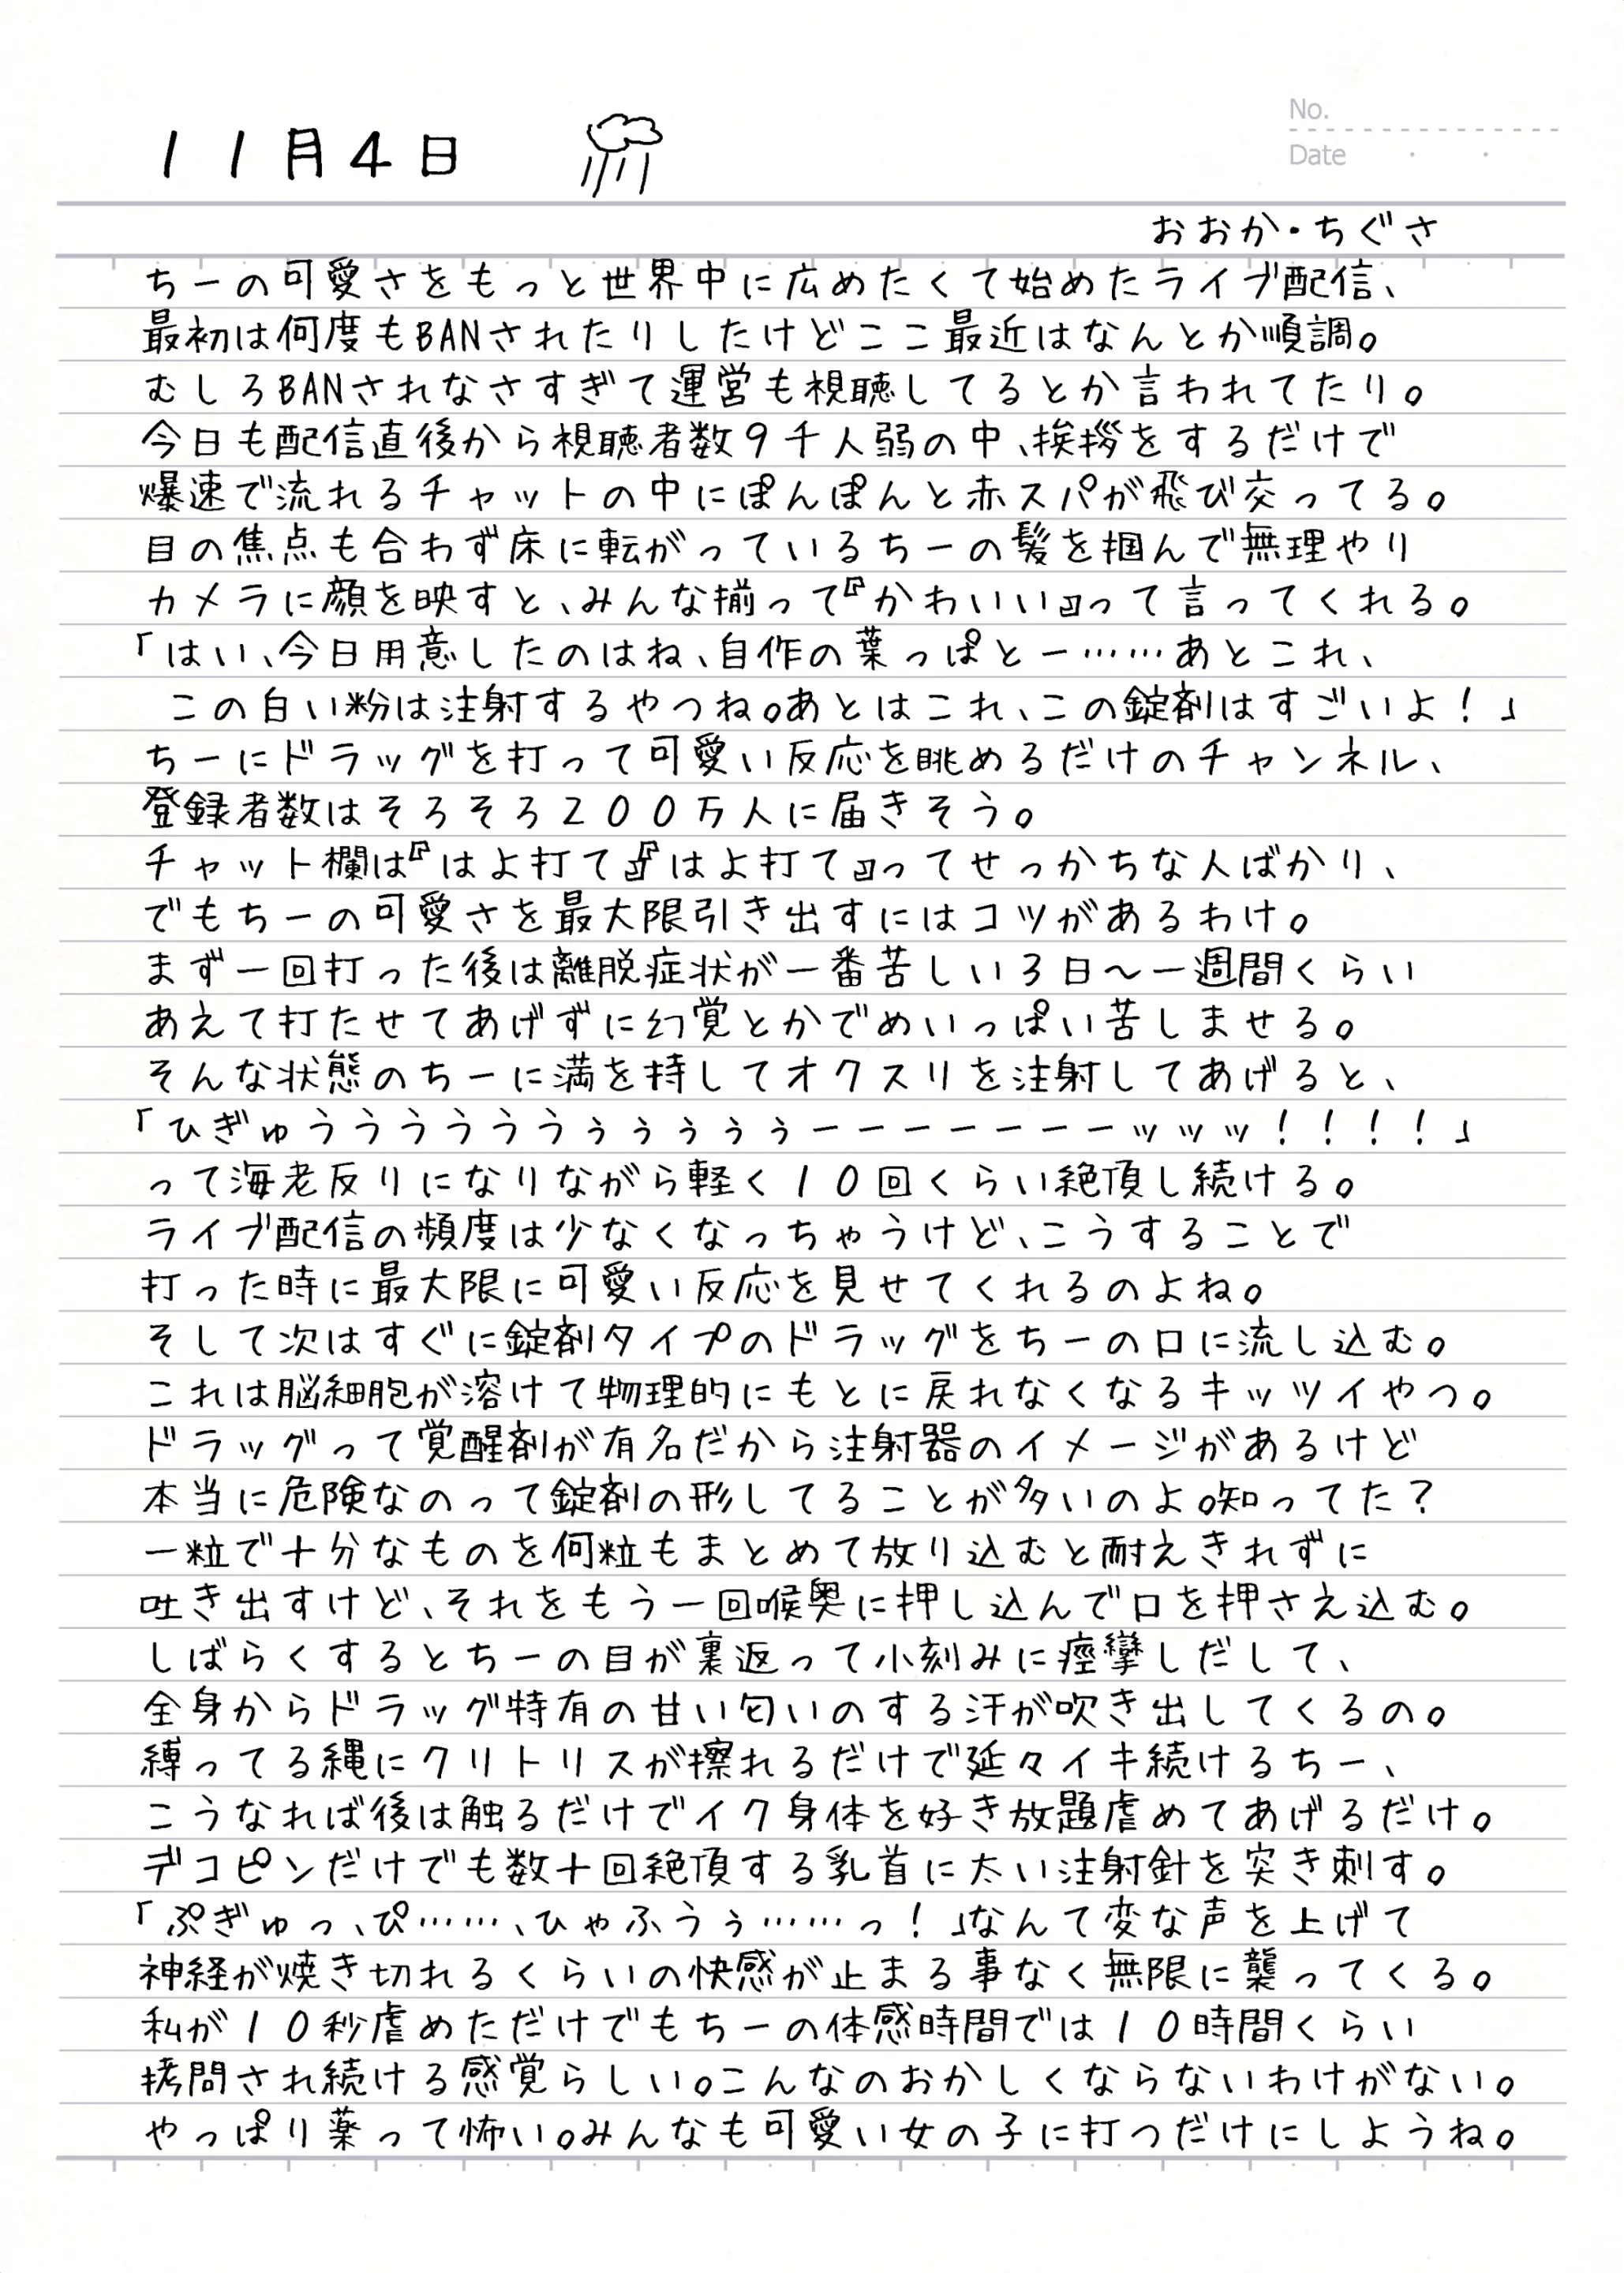 11月4日
No.
Date
おおか・ちぐさ
ちーの可愛さをもっと世界中に広めたくて始めたライブ配信、
最初は何度もBANされたりしたけどここ最近はなんとか順調。
むしろBANされなさすぎて運営も視聴してるとか言われてたり。
今日も配信直後から視聴者数9千人弱の中、挨拶をするだけで
爆速で流れるチャットの中にぽんぽんと赤スパが飛び交ってる。
目の焦点も合わず床に転がっているちーの髪を掴んで無理やり
カメラに顔を映すと、みんな揃って『かわいい』って言ってくれる。
「はい、今日用意したのはね、自作の葉っぱとー……あとこれ、
この白い粉は注射するやつね。あとはこれ、この錠剤はすごいよ！」
ちーにドラッグを打って可愛い反応を眺めるだけのチャンネル、
登録者数はそろそろ200万人に届きそう。
チャット欄は『はよ打て』『はよ打て』ってせっかちな人ばかり、
でもちーの可愛さを最大限引き出すにはコツがあるわけ。
まず一回打った後は離脱症状が一番苦しい3日～一週間くらい
あえて打たせてあげずに幻覚とかでめいっぱい苦しませる。
そんな状態のちーに満を持してオクスリを注射してあげると、
「ひぎゅうううううううぅぅぅぅーーーーーーーッッッ！！！！」
って海老反りになりながら軽く10回くらい絶頂し続ける。
ライブ配信の頻度は少なくなっちゃうけど、こうすることで
打った時に最大限に可愛い反応を見せてくれるのよね。
そして次はすぐに錠剤タイプのドラッグをちーの口に流し込む。
これは脳細胞が溶けて物理的にもとに戻れなくなるキッツイやつ。
ドラッグって覚醒剤が有名だから注射器のイメージがあるけど
本当に危険なのって錠剤の形してることが多いのよ。知ってた？
一粒で十分なものを何粒もまとめて放り込むと耐えきれずに
吐き出すけど、それをもう一回喉奥に押し込んで口を押さえ込む。
しばらくするとちーの目が裏返って小刻みに痙攣しだして、
全身からドラッグ特有の甘い匂いのする汗が吹き出してくるの。
縛ってる縄にクリトリスが擦れるだけで延々イキ続けるちー、
こうなれば後は触るだけでイク身体を好き放題虐めてあげるだけ。
デコピンだけでも数十回絶頂する乳首に太い注射針を突き刺す。
「ぷぎゅっ、ぴ……、ひゃふうぅ……っ！」なんて変な声を上げて
神経が焼き切れるくらいの快感が止まる事なく無限に襲ってくる。
私が10秒虐めただけでもちーの体感時間では10時間くらい
拷問され続ける感覚らしい。こんなのおかしくならないわけがない。
やっぱり薬って怖い。みんなも可愛い女の子に打つだけにしようね。